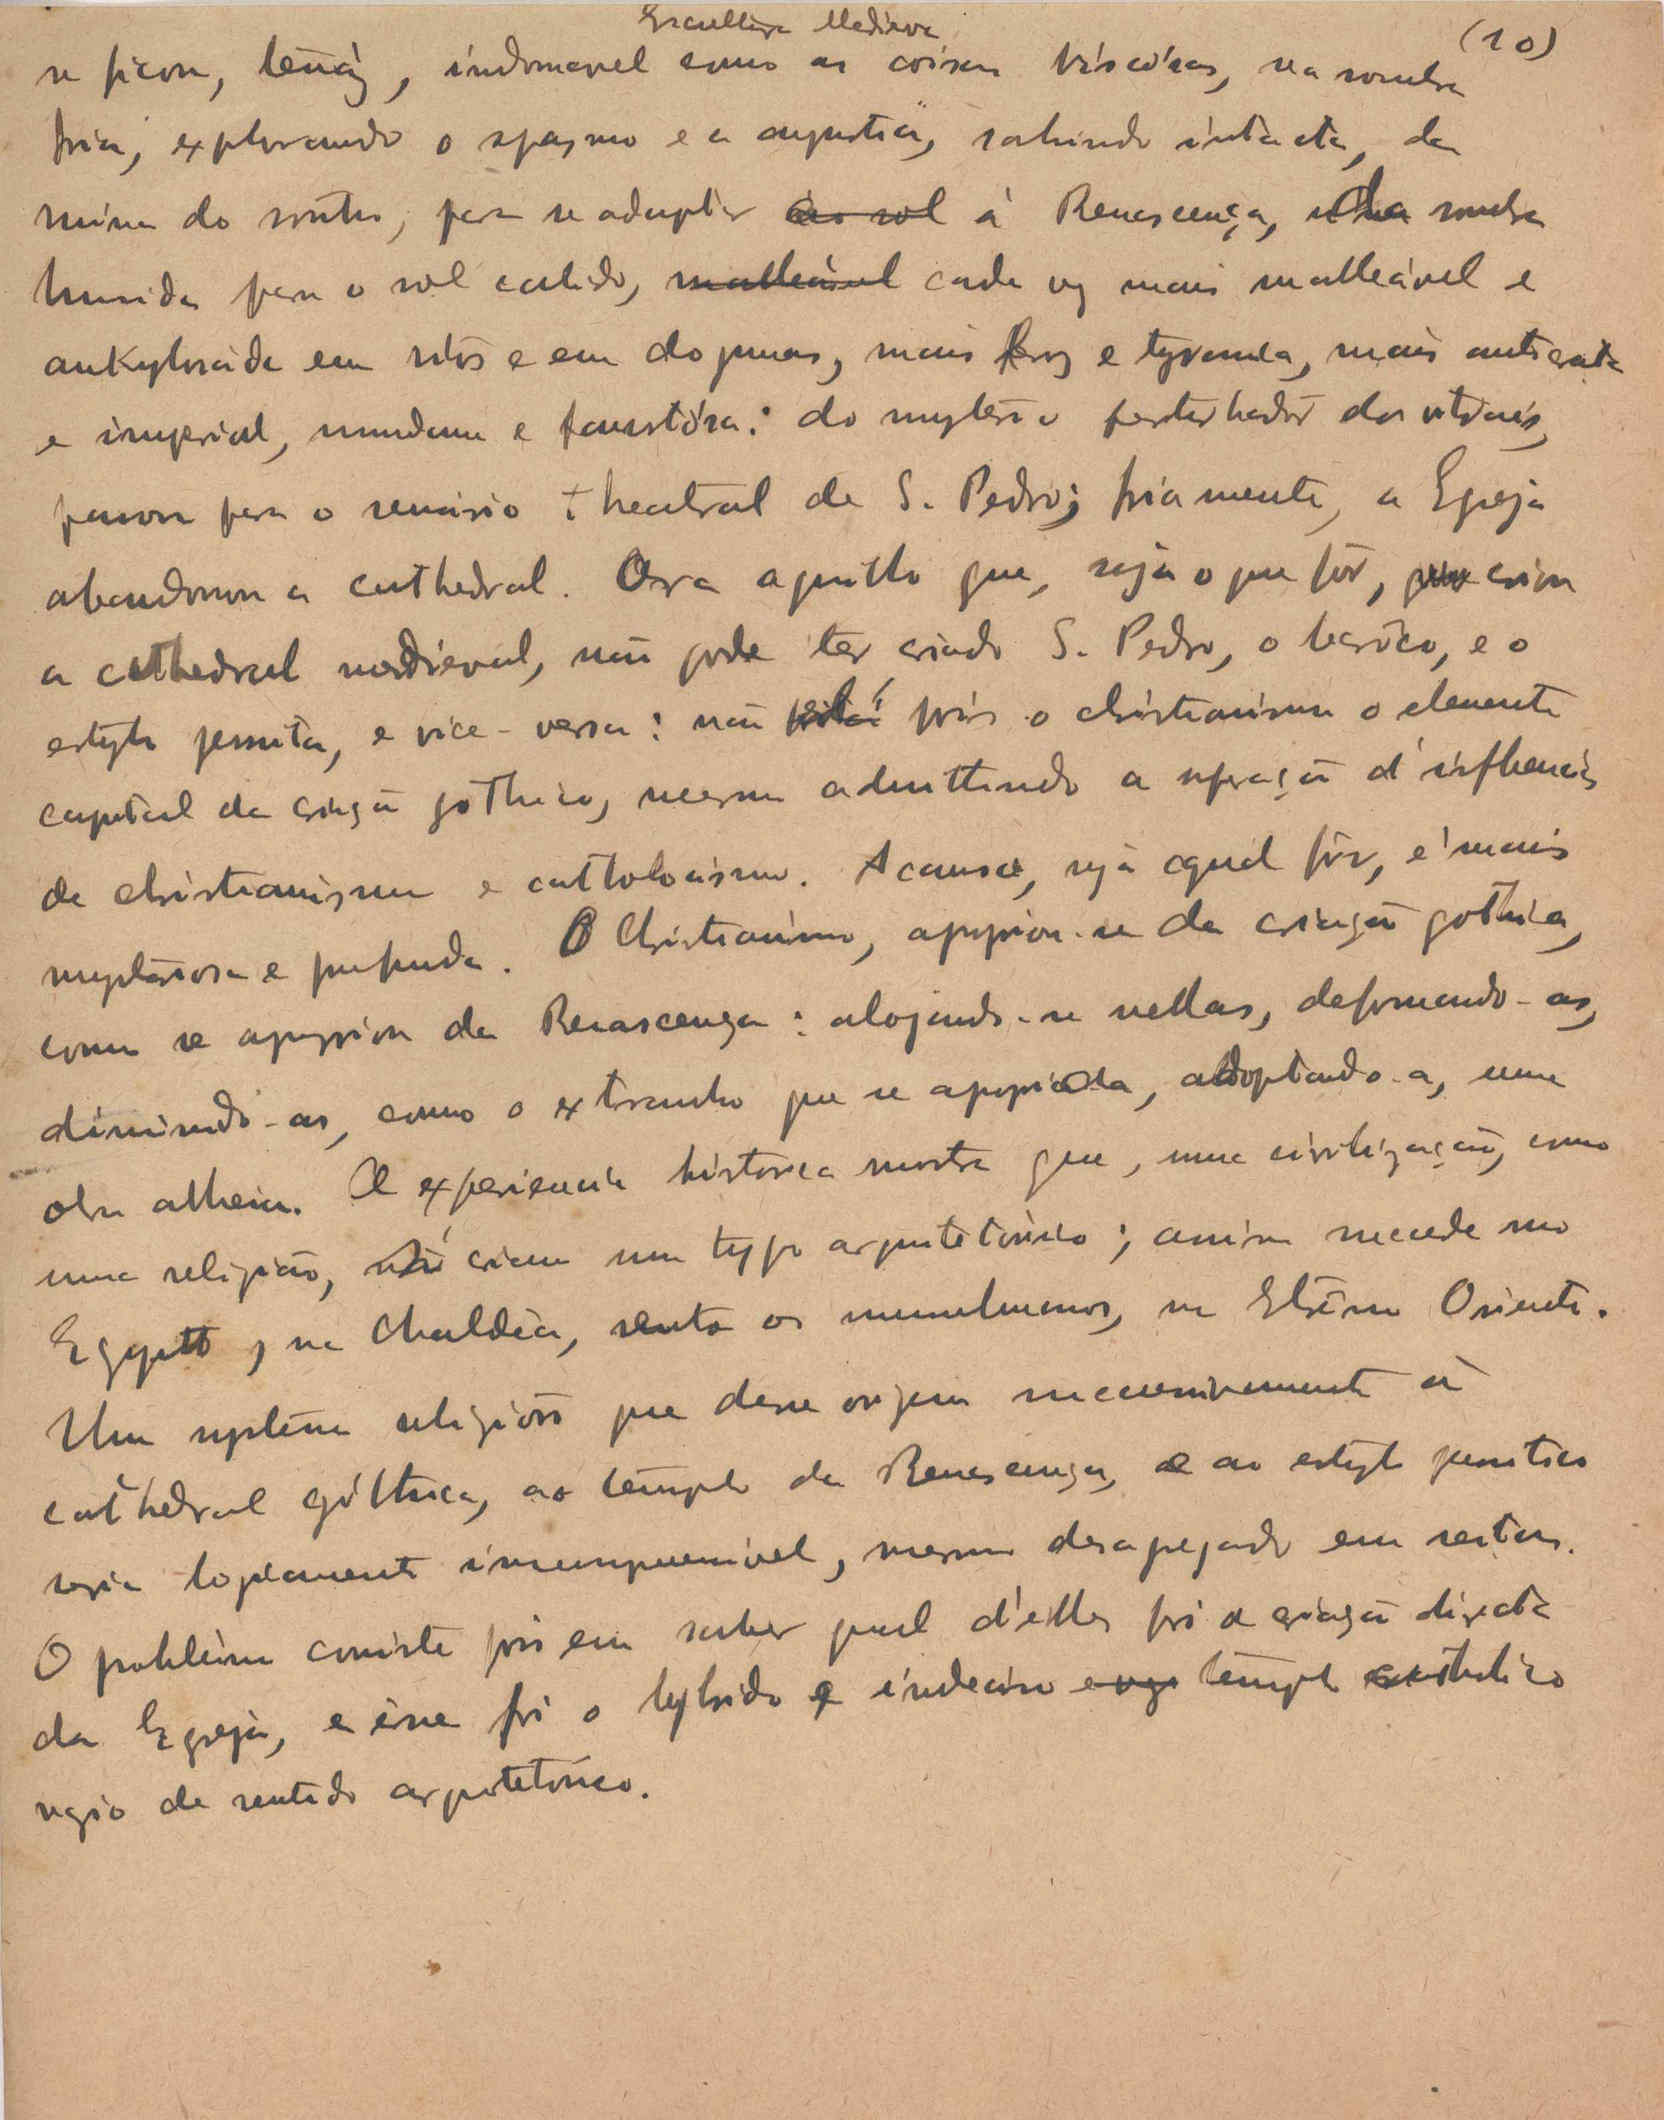 Escultura Medieva
(10)
se ficou, tenáz, indomavel como as coisas viscósas, na sombra
fria, explorando o spasmo e a angustia, sahindo intácta, da
ruina do sonho, para se adaptar ao sol á Renascença, da sombra
humida para o sol calido, malleável cada vez mais malleável e
ankylosáda em ritos e em dogmas, mais feroz e tyranna, mais autocrata
e imperial, mundana e faustósa: do mysterio perturbadôr dos vitraes,
passou para o scenario theatral de S. Pedro; friamente, a Egreja
abandonou a cathedral. Ora aquillo que, seja o que fôr, creou
a cathedral medieval, não pode ter criado S. Pedro, o barôco, e o
estylo jesuita, e vice-versa: não foi pois o christianismo o elemento
capital da criação gothica, mesmo admittindo a separação d'influencias
de christianismo e catholocismo. A causa, seja qual fôr, é mais
mysteriosa e profunda. O Christianismo, apropriou-se da criação gothica,
como se apropriou da Renascença: alojando-se nellas, deformando-as,
diminuindo-as, como o extranho que se apropria da, adoptando-a, uma
obra alheia. A experiencia historica mostra que, uma civilização, como
uma religião, só criam um typo arquitetónico; assim succede no
Egypto, na Chaldêa, entre os musulmanos, no Extremo Oriente.
Um systêma religiôso que desse origem successivamente á
cathedral góthica, ao templo da Renascença, e ao estylo jesuitico
seria logicamente incompreensivel, mesmo desagregado em seitas.
O problêma consiste pois em saber qual d'elles foi a criação directa
da Egreja, e êsse foi o hybrido e indeciso templo catholico
vazio de sentido arquitetónico.